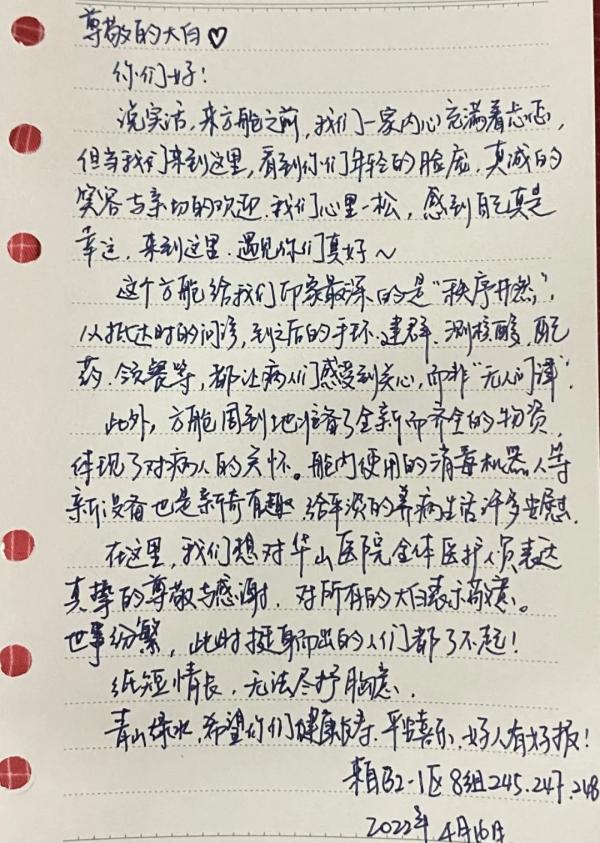 尊敬的大白♡
你们好！
说实话，来方舱之前，我们一家内心充满着忐忑，
但当我们来到这里，看到你们年轻的脸庞、真诚的
笑容与亲切的欢迎，我们心里一松，感到自己真是
幸运，来到这里，遇见你们真好～
这个方舱给我们印象最深的是“秩序井然”，
从抵达时的问诊，到之后的手环、建群、测核酸、配
药、领餐等，都让病人们感受到关心，而非“无人问津”。
此外，方舱周到地准备了全新而齐全的物资，
体现了对病人的关怀。舱内使用的消毒机器人等
新设备也是新奇有趣，给平淡的养病生活许多安慰。
在这里，我们想对华山医院全体医护人员表达
真挚的尊敬与感谢，对所有的大白表示敬意。
世事纷繁，此时挺身而出的人们都了不起！
纸短情长，无法尽抒胸意，
青山绿水，希望你们健康长寿、平安喜乐、好人有好报！
来自B2-1区8组245.247.248
2022年4月16日